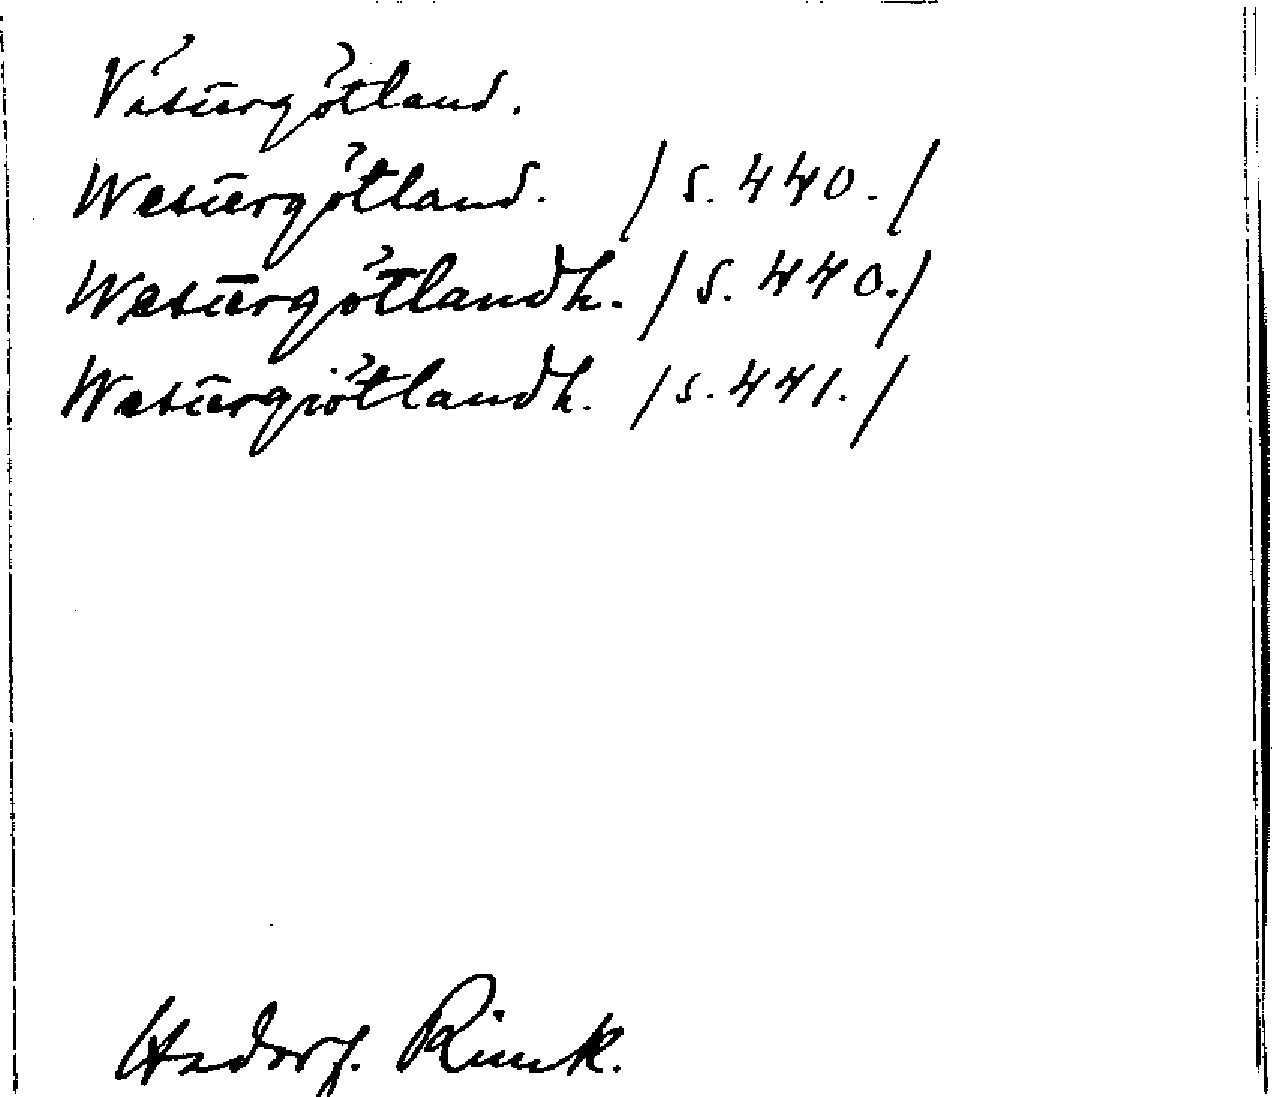 Västergötland.
Westergötland. / s. 440. /
Westergötlandh. / s. 440. /
Westergiötlandh. / s. 441. /
Hadorf. Rimk.